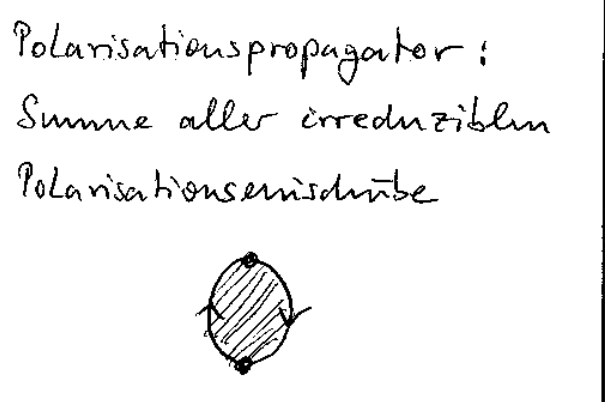 Polarisationspropagator:
Summe aller irreduziblen
Polarisationseinschübe